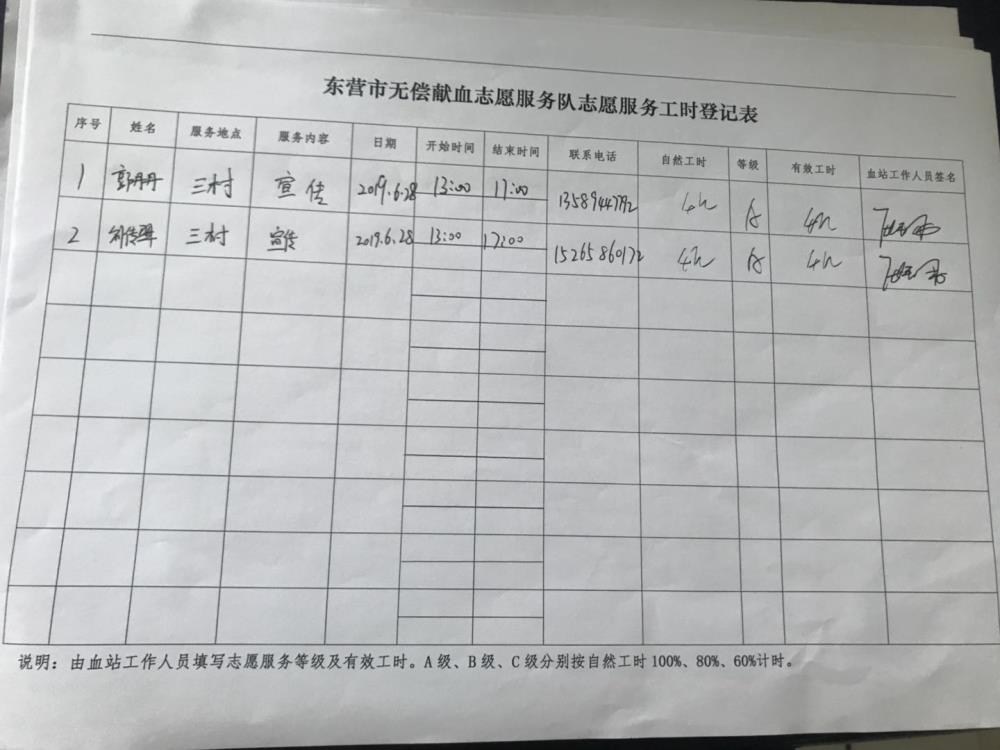 东营市无偿献血志愿服务队志愿服务工时登记表
序号 姓名 服务地点 服务内容 日期 开始时间 结束时间 联系电话 自然工时 等级 有效工时 血站工作人员签名
1 郭丹丹 三村 宣传 2019.6.28 13:00 17:00 13589944792 4h A 4h
2 三村 宣传 2019.6.28 13:00 17:00 15265860172 4h A 4h
说明：由血站工作人员填写志愿服务等级及有效工时。A级、B级、C级分别按自然工时100%、80%、60%计时。